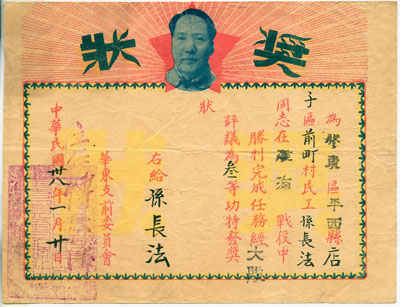 獎狀
為華東區平西縣店
子區前町村民工孫長法
同志在淮海戰役中
勝利完成任務經大隊
評議為叁等功特發獎
狀
右給孫長法
華東支前委員會
中華民國卅八年一月廿日